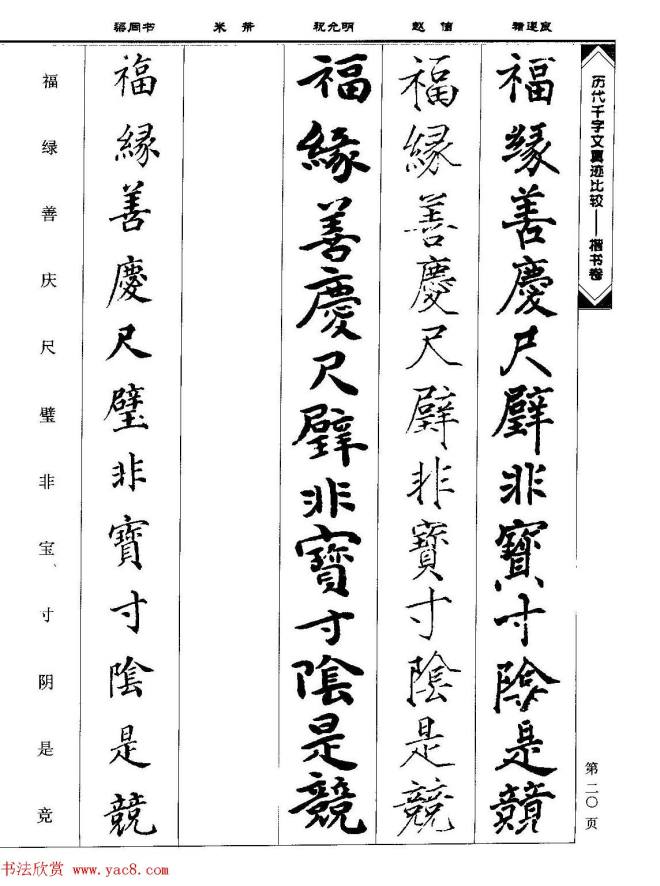 历代千字文真迹比较——楷书卷
第二〇页
褚遂良
福緣善慶尺璧非寶寸陰是競
赵佶
福緣善慶尺璧非寶寸陰是競
祝允明
福緣善慶尺璧非寶寸陰是競
米芾
梁同书
福緣善慶尺璧非寶寸陰是競
福绿善庆尺璧非宝寸阴是竞
书法欣赏 www.yac8.com